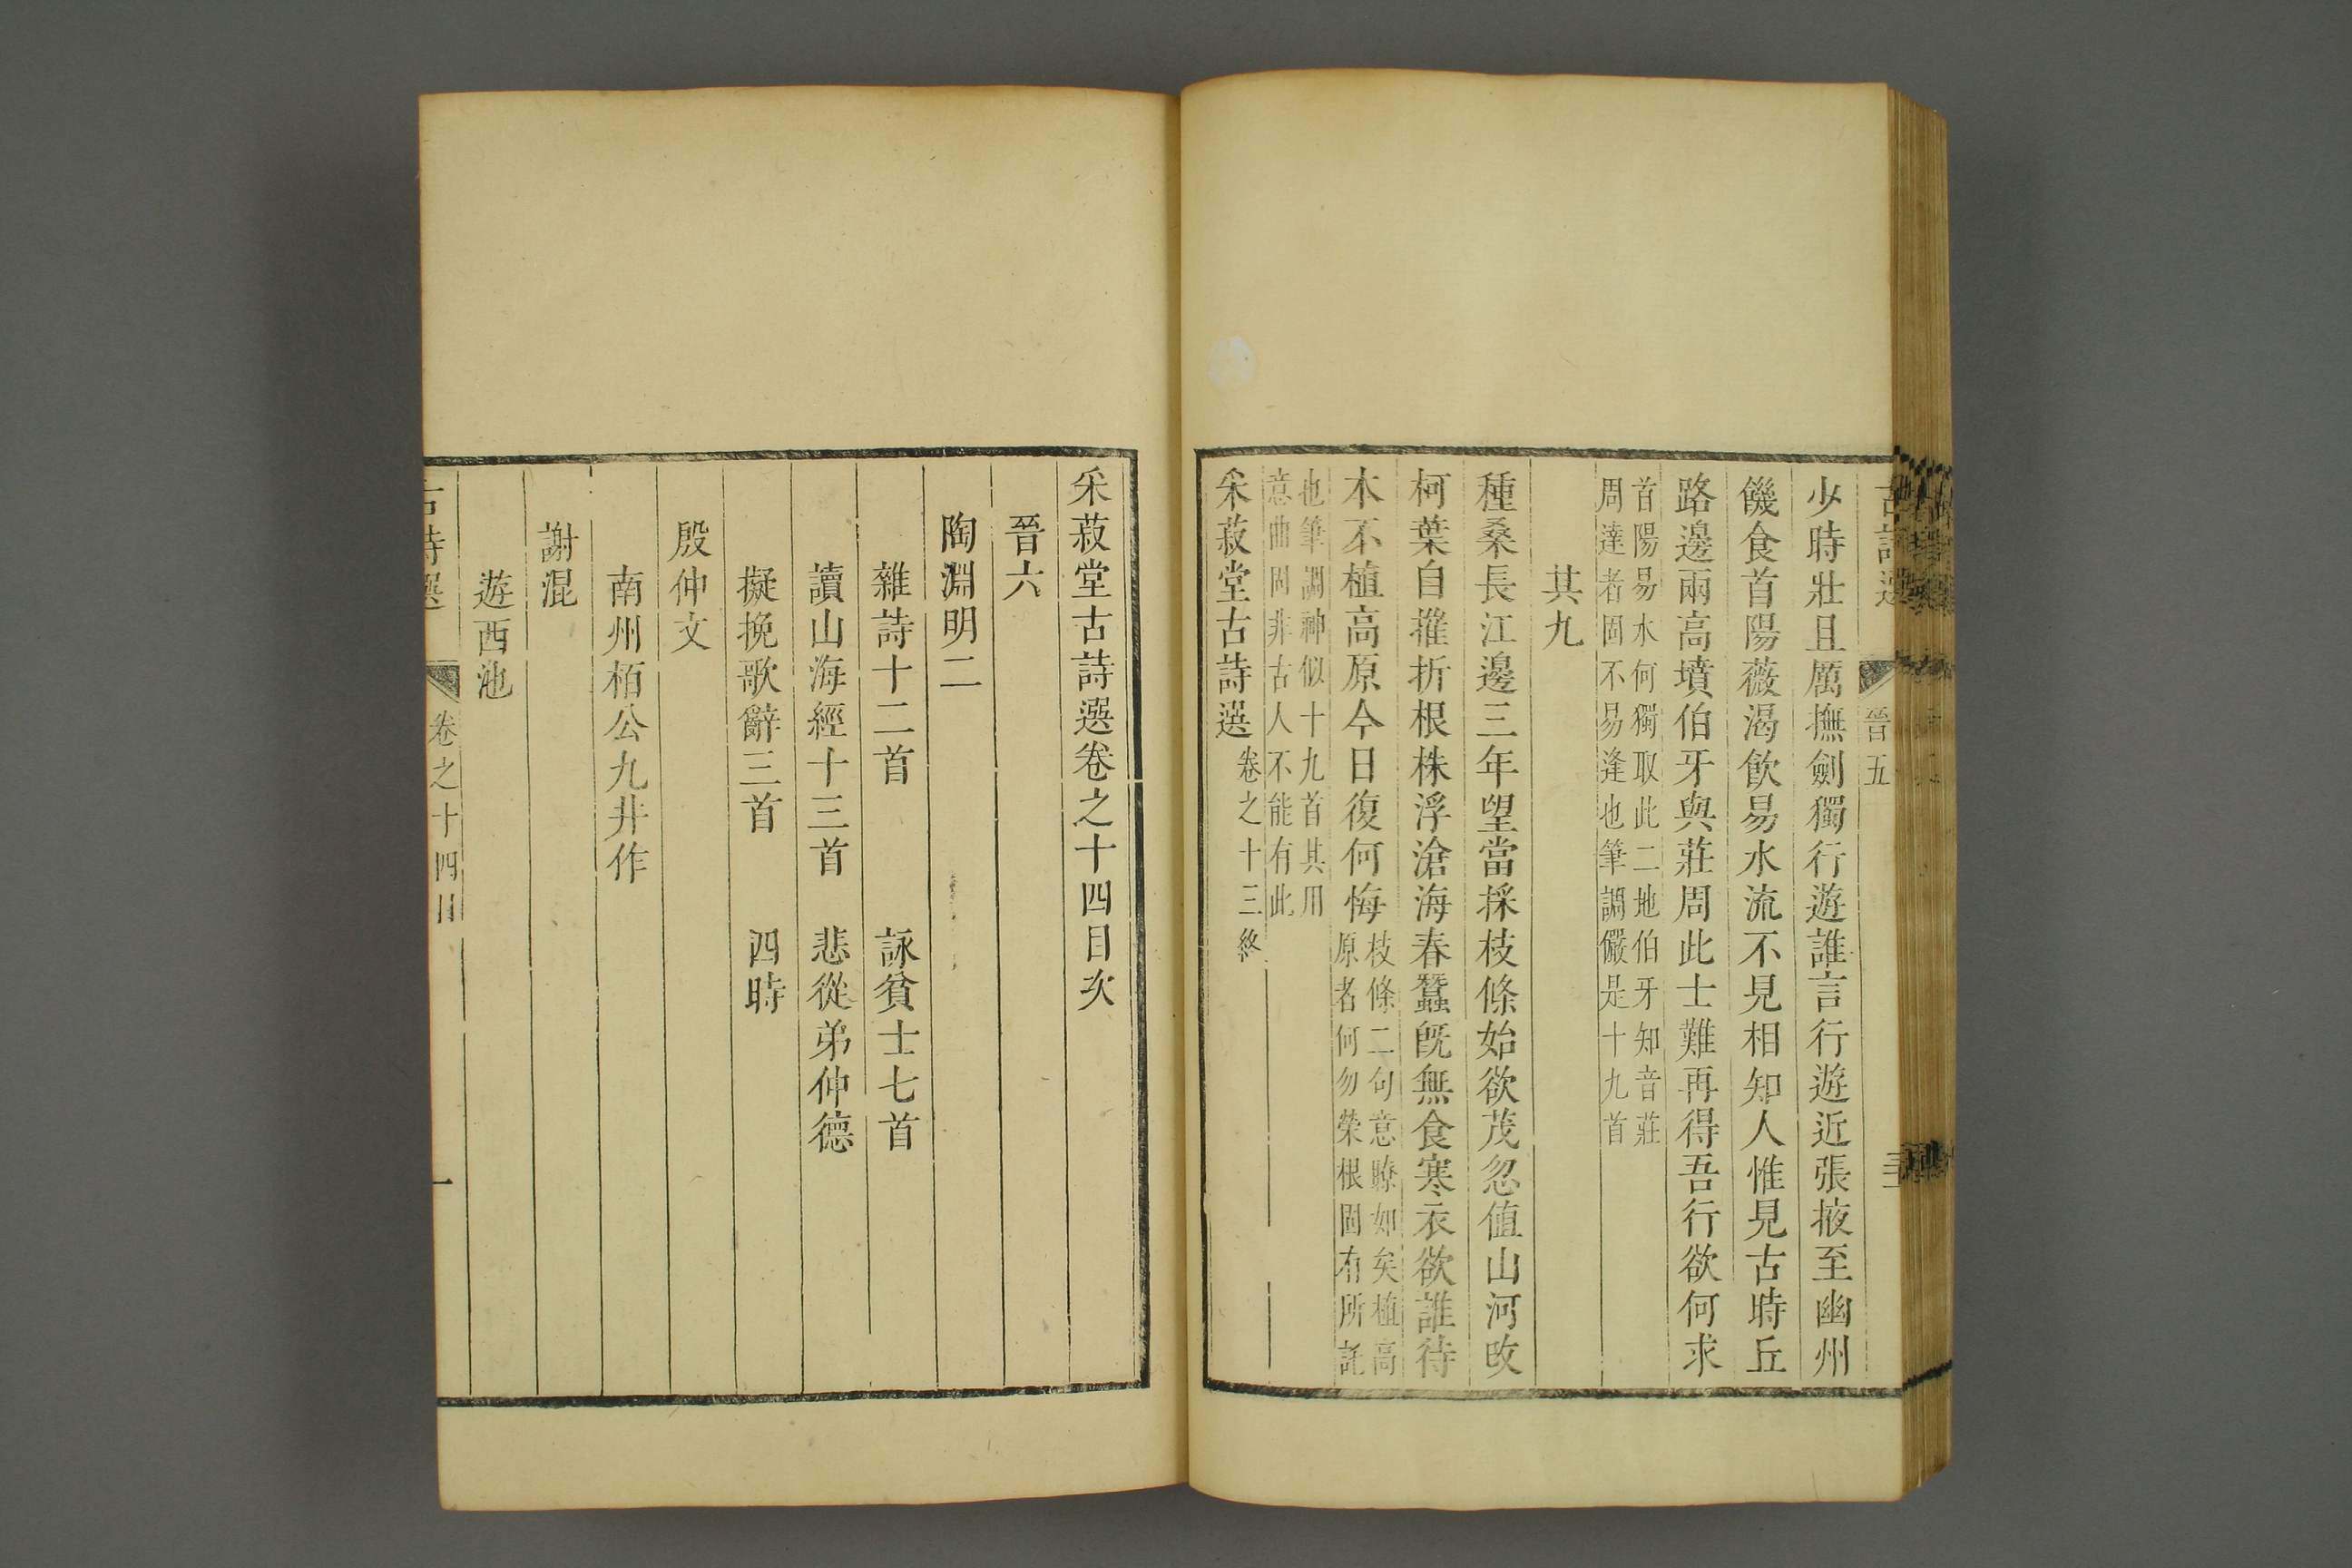 少時壯且厲撫劍獨行遊誰言行遊近張掖至幽州
饑食首陽薇渴飲易水流不見相知人惟見古時丘
路邊兩高墳伯牙與莊周此士難再得吾行欲何求
首陽易水何獨取此二地伯牙知音莊
周達者固不易逢也筆調儼是十九首
其九
種桑長江邊三年望當採枝條始欲茂忽值山河改
柯葉自摧折根株浮滄海春蠶旣無食寒衣欲誰待
本不植高原今日復何悔
枝條二句意瞭如矣植高
原者何勿榮根固有所託
也筆調神似十九首其用
意曲固非古人不能有此
采菽堂古詩選 卷之十三終
晉五
采菽堂古詩選卷之十四目次
晉六
陶淵明二
雜詩十二首 詠貧士七首
讀山海經十三首 悲從弟仲德
擬挽歌辭三首 四時
殷仲文
南州栢公九井作
謝混
遊西池
古詩選 卷之十四目 一